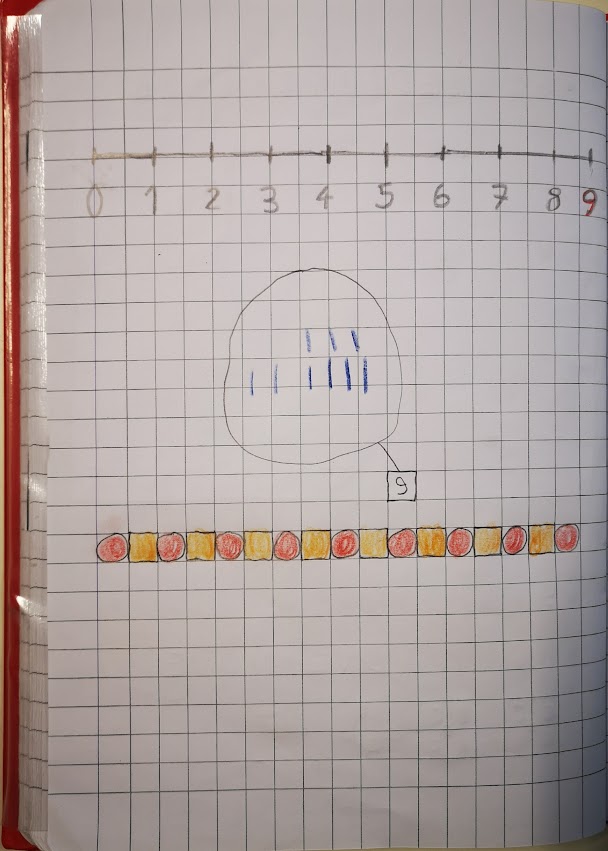 0 1 2 3 4 5 6 7 8 9
9